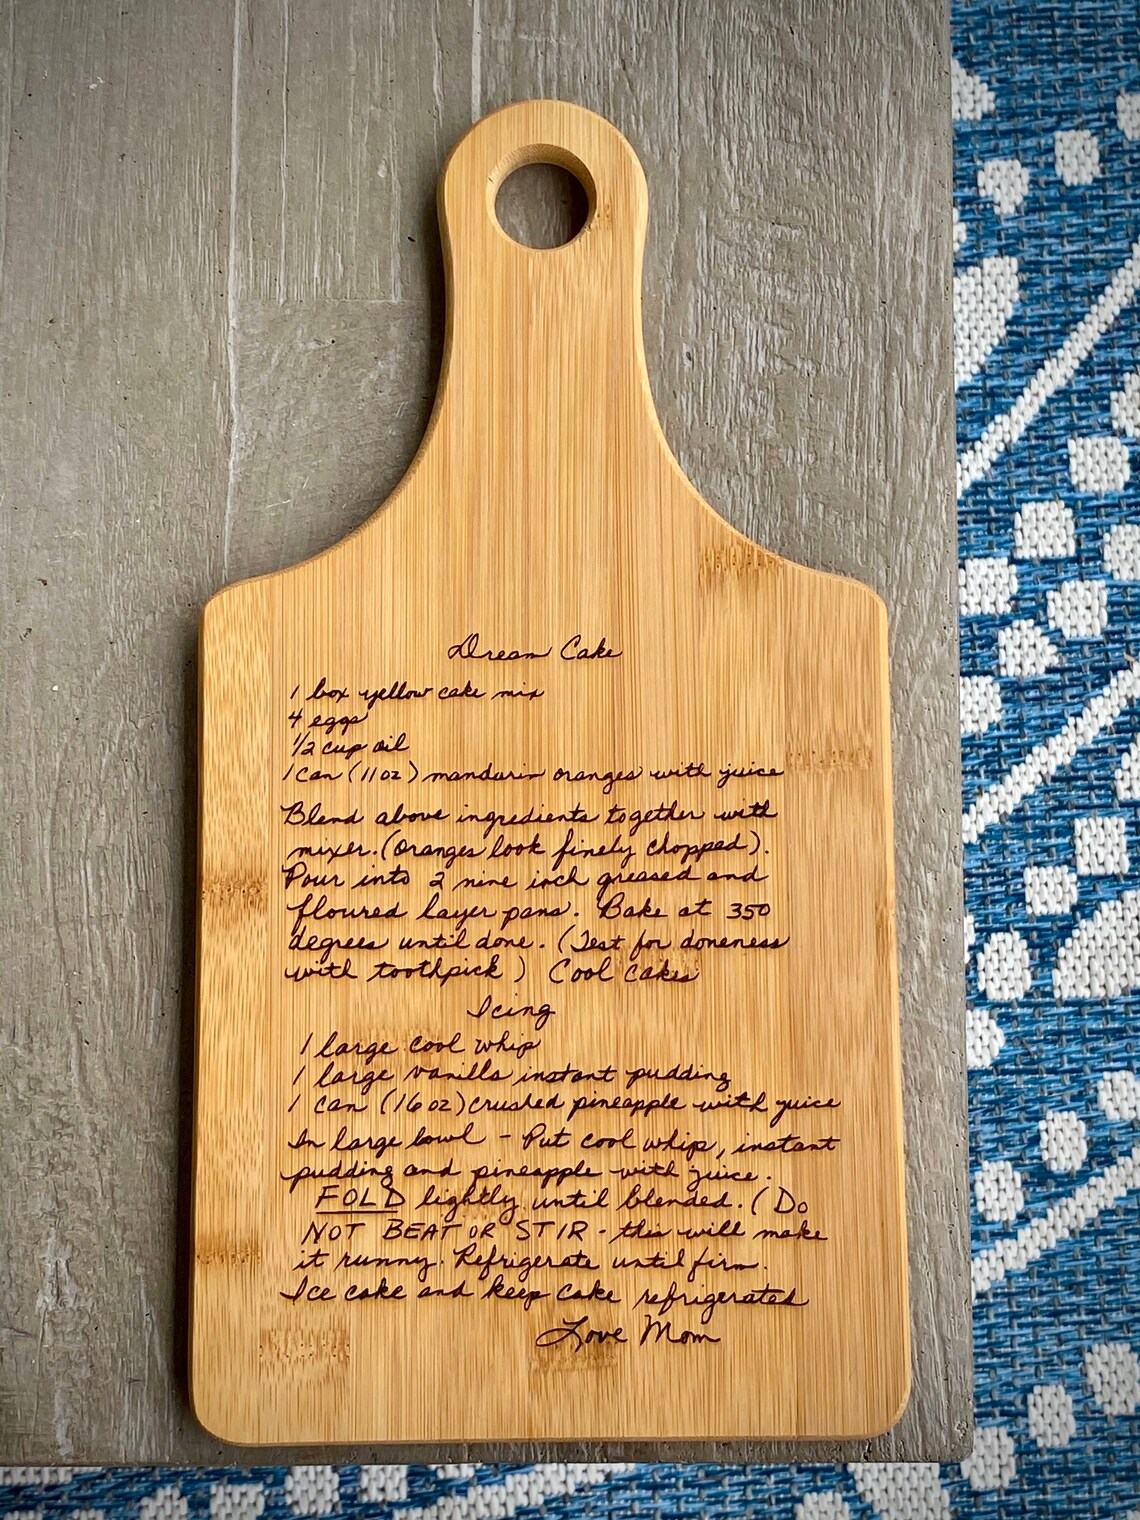 Dream Cake
1 box yellow cake mix
4 eggs
1/2 cup oil
1 can (11 oz) mandarin oranges with juice
Blend above ingredients together with
mixer. (oranges look finely chopped).
Pour into 2 nine inch greased and
floured layer pans. Bake at 350
degrees until done. (Test for doneness
with toothpick) Cool cakes
Icing
1 large cool whip
1 large vanilla instant pudding
1 can (16 oz) crushed pineapple with juice
In large bowl - Put cool whip, instant
pudding and pineapple with juice.
FOLD lightly until blended. (Do
NOT BEAT OR STIR - this will make
it runny. Refrigerate until firm.
Ice cake and keep cake refrigerated
Love Mom